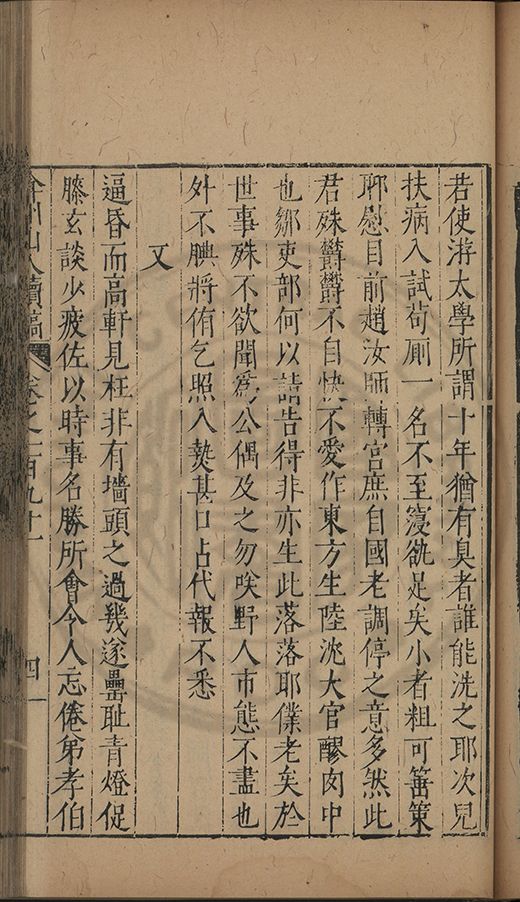 若使游太學所謂十年猶有臭者誰能洗之耶次兒
扶病入試苟厠一名不至寢欲足矣小者粗可箠策
耶慰目前趙汝師轉宮庶自國老調停之意多然此
君殊鬱鬱不自快不愛作東方生陸沈大官醪肉中
也鄒吏部何以請告得非亦生此落落耶僕老矣於
世事殊不欲聞爲公偶及之勿唉野人市態不盡也
外不腆將侑乞照入熱甚口占代報不悉
又
逼昏而高軒見枉非有墻頭之過幾遂罍耻青燈促
膝玄談少疲佐以時事名勝所會令人忘倦弟孝伯
弇州山人續稿
卷之一百九十一
四一